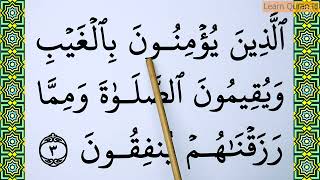 Learn Quran
ٱلَّذِينَ يُؤۡمِنُونَ بِٱلۡغَيۡبِ
وَيُقِيمُونَ ٱلصَّلَوٰةَ وَمِمَّا
رَزَقۡنَـٰهُمۡ يُنفِقُونَ ٣